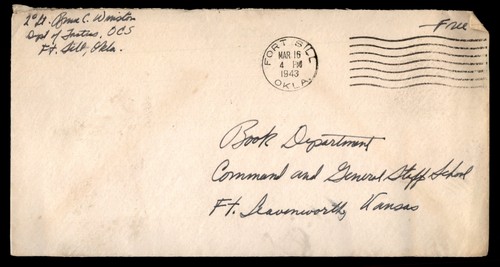 2d Lt. C. Winston
Dept of Tactics, OCS
Ft. Sill, Okla.
Free
FORT SILL
MAR 16
4 PM
1943
OKLA.
Book Department
Command and General Staff School
Ft. Leavenworth, Kansas